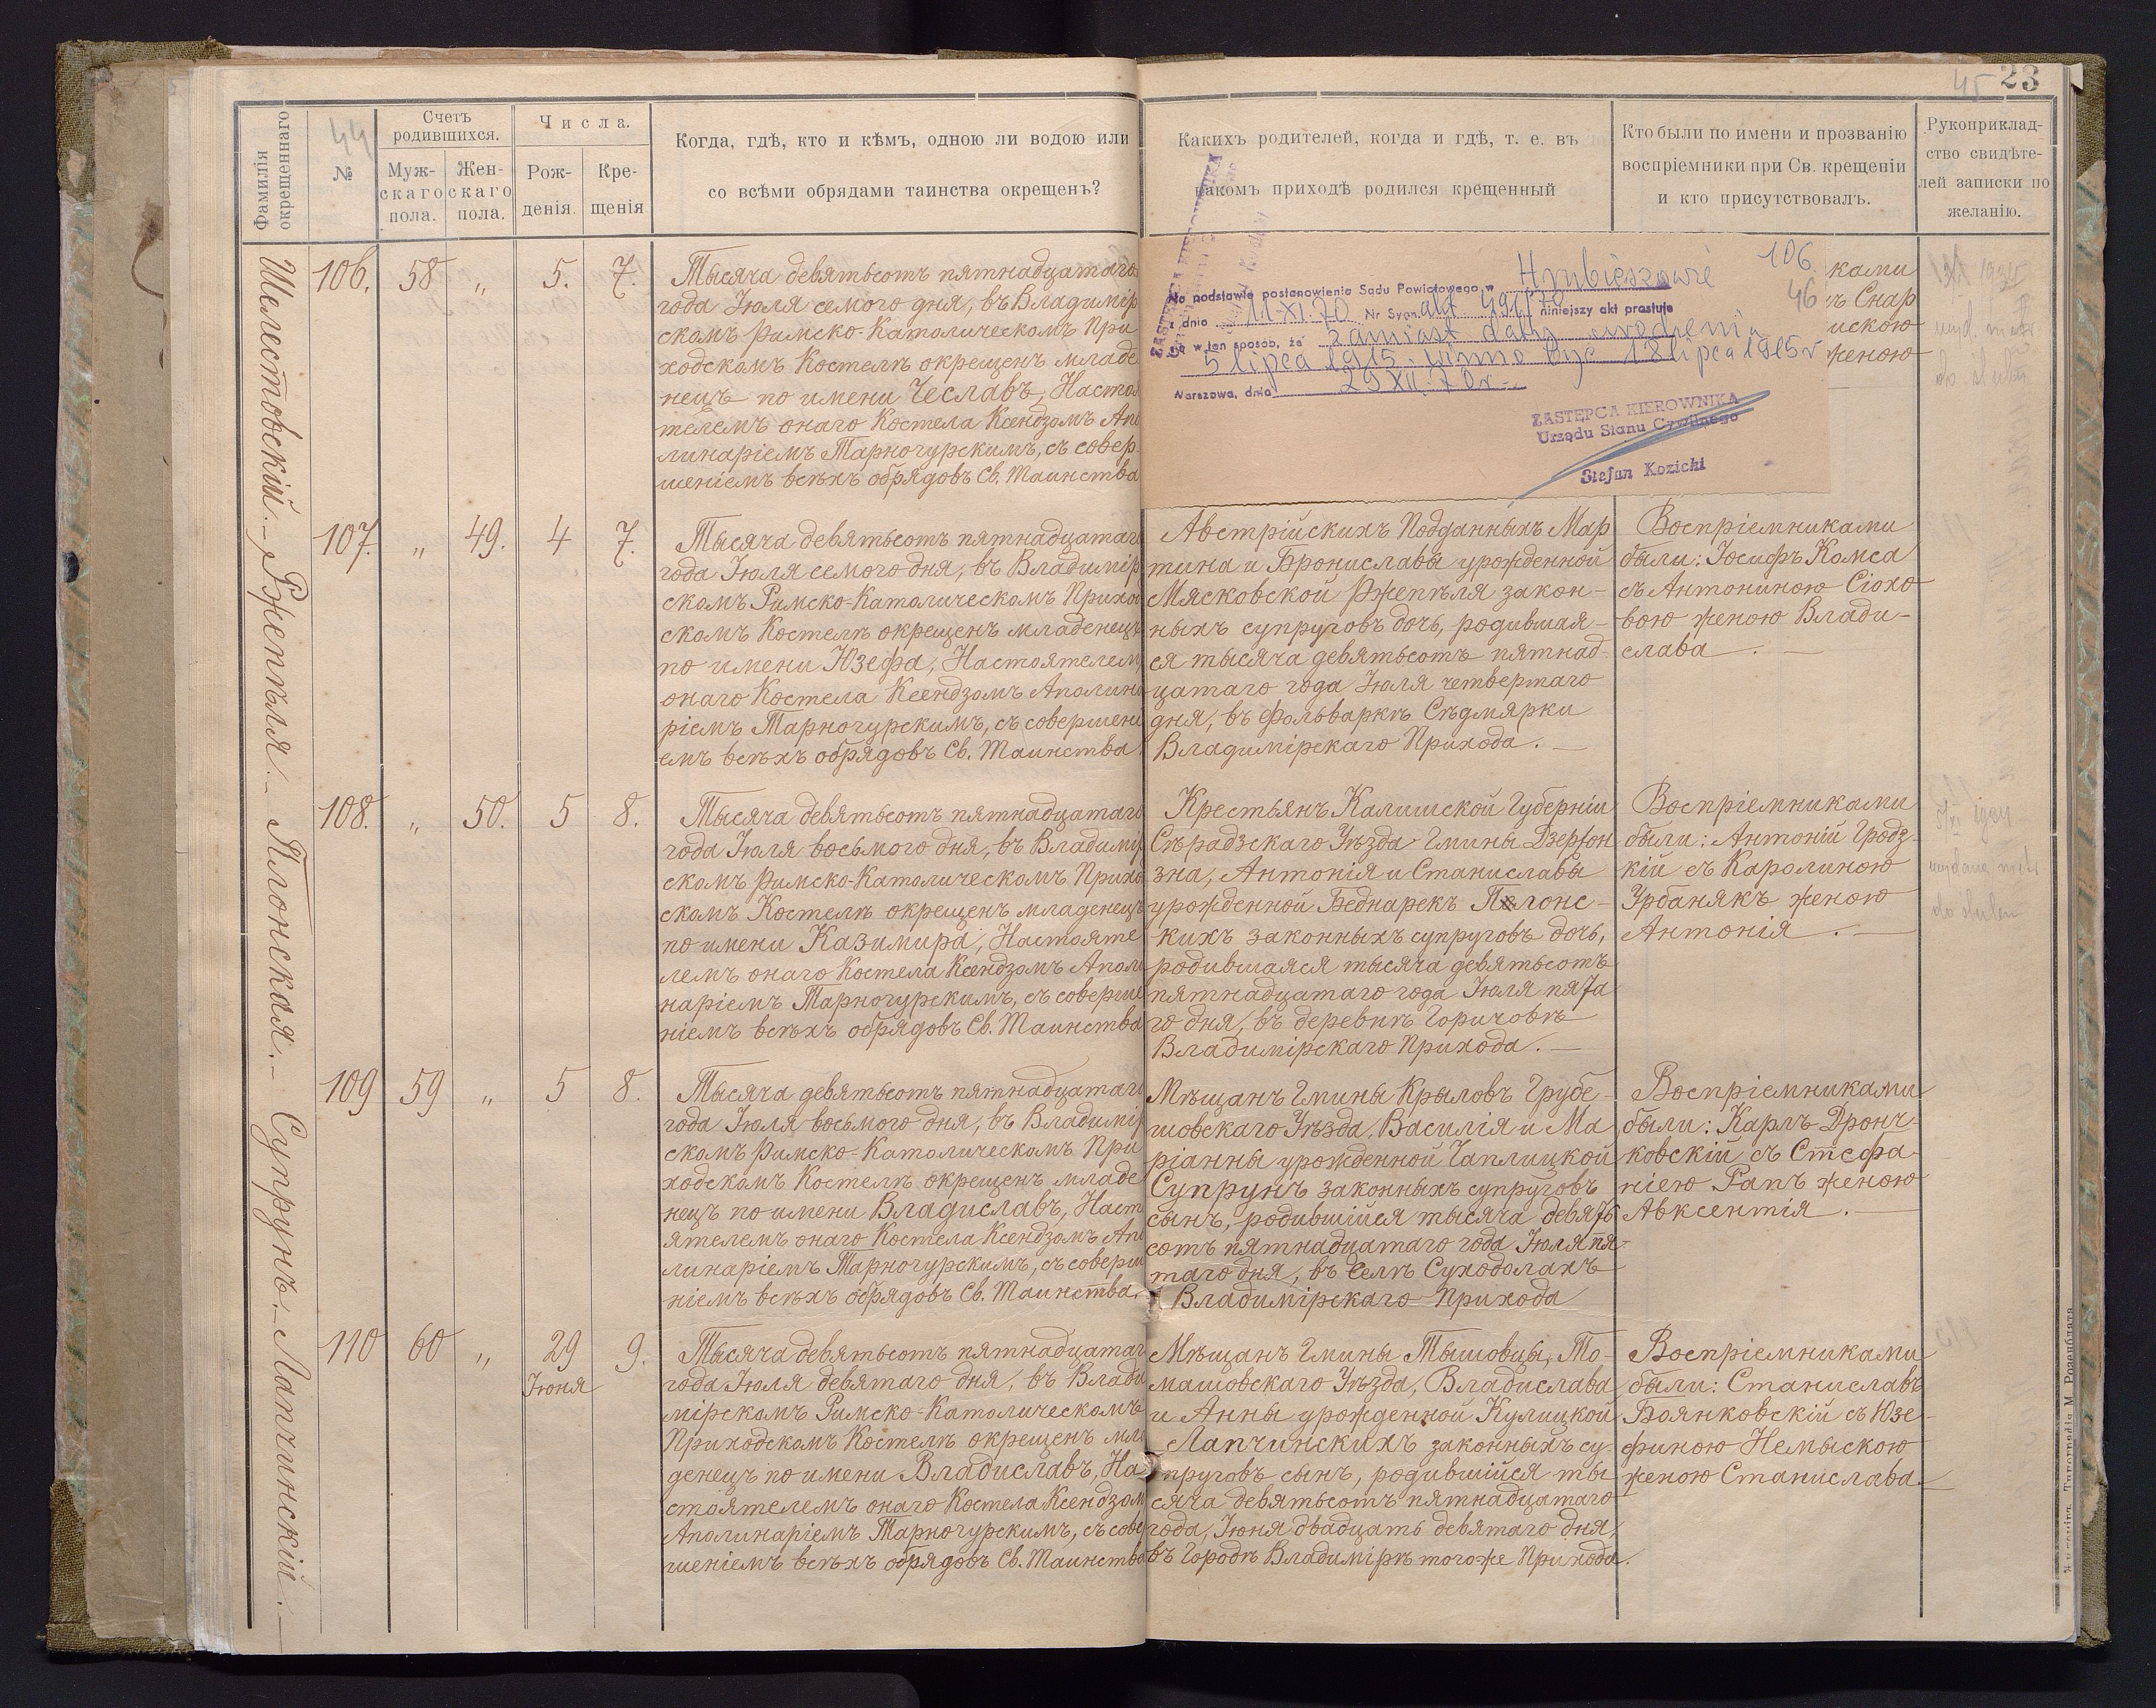 45 23
44
Фамилія окрещеннаго
№
Счетъ родившихся.
Муж-
скаго
пола.
Жен-
скаго
пола.
Числа.
Рож-
денія.
Кре-
щенія
Когда, гдѣ, кто и кѣмъ, одною ли водою или
со всѣми обрядами таинства окрещенъ?
Какихъ родителей, когда и гдѣ, т. е. въ
какомъ приходѣ родился крещенный
Кто были по имени и прозванію
воспріемники при Св. крещеніи
и кто присутствовалъ.
Рукоприклад-
ство свидѣте-
лей записки по
желанію.
Шелестовскій.
106. 58 „ 5. 7.
Тысяча девятьсотъ пятнадцатаго
года Іюля семого дня, въ Владимір
скомъ Римско-Католическомъ При
ходскомъ Костелѣ окрещенъ младе
нецъ по имени Чеславъ, Насто
телемъ онаго Костела Ксендзомъ Апо
линаріемъ Тарногурскимъ, съ совер
шеніемъ всѣхъ обрядовъ Св. Таинства
Hrubieszowie 106
Na podstawie postanowienia Sadu Powiatowego w
46
z dnia 11-XI.70 Nr Sygn. akt niniejszy akt prostuje
się w ten sposób, że zamiast daty urodzenia
5 lipca 1915 winno być 18 lipca 1915 r
Warszawa, dnia 29 XII.70r.
ZASTĘPCA KIEROWNIKA
Urzędu Stanu Cywilnego
Stefan Kozicki
ZASTĘPCA KIEROWNIKA
ками
ъ Снар
искою
женою
Ржепѣля.
107. „ 49. 4 7.
Тысяча девятьсотъ пятнадцатаг
года Іюля семого дня, въ Владимір
скомъ Римско-Католическомъ Приход
скомъ Костелѣ окрещенъ младенецъ
по имени Юзефа, Настоятелем
онаго Костела Ксендзомъ Аполина
ріемъ Тарногурскимъ, съ совершені
емъ всѣхъ обрядовъ Св. Таинства.
Австрійскихъ Подданныхъ Мар
тина и Брониславы урожденной
Мясковской Ржепѣля закон-
ныхъ супруговъ дочь, родившая-
ся тысяча девятьсотъ пятнад-
цатаго года Іюля четвертаго
дня, въ Фольваркѣ Сѣдмярки
Владимірскаго Прихода.
Воспріемниками
были: Іосифъ Комса
съ Антониною Сіохо
вою женою Влади-
слава.
Плонская.
108. „ 50. 5 8.
Тысяча девятьсотъ пятнадцатаго
года Іюля восьмого дня, въ Владимір
скомъ Римско-Католическомъ Прихо
скомъ Костелѣ окрещенъ младенецъ
по имени Казимира, Настояте
лемъ онаго Костела Ксендзомъ Апол
наріемъ Тарногурскимъ, съ соверше
ніемъ всѣхъ обрядовъ Св. Таинства
Крестьянъ Калишской Губерніи
Сѣрадзскаго Уѣзда Гмины Дзержон
зна, Антонія и Станиславы
урожденной Беднарекъ Плонс-
кихъ законныхъ супруговъ дочь,
родившаяся тысяча девятьсотъ
пятнадцатаго года Іюля пята
го дня, въ деревнѣ Горичовѣ
Владимірскаго Прихода.
Воспріемниками
были: Антоній Гродз-
кій съ Каролиною
Урбанякъ женою
Антонія.
Супрунъ.
109 59 „ 5 8.
Тысяча девятьсотъ пятнадцатаго
года Іюля восьмого дня, въ Владимір
скомъ Римско-Католическомъ При
ходскомъ Костелѣ окрещенъ младе
нецъ по имени Владиславъ, Наст
ятелемъ онаго Костела Ксендзомъ Апо
линаріемъ Тарногурскимъ, съ соверш
ніемъ всѣхъ обрядовъ Св. Таинства.
Мѣщанъ Гмины Крыловъ Грубе-
шовскаго Уѣзда, Василія и Ма
ріанны урожденной Чаплицкой
Супрунъ законныхъ супруговъ
сынъ, родившійся тысяча девять
сотъ пятнадцатаго года Іюля пя-
таго дня, въ Селѣ Суходолахъ
Владимірскаго Прихода
Воспріемниками
были: Карлъ Дронч-
ковскій съ Стефа-
ніею Рапъ женою
Авксентія.
Лапчинскій.
110 60 „ 29 Іюня 9.
Тысяча девятьсотъ пятнадцатаг
года Іюля девятаго дня, въ Влади
мірскомъ Римско-Католическомъ
Приходскомъ Костелѣ окрещенъ мла
денецъ по имени Владиславъ, На
стоятелемъ онаго Костела Ксендзом
Аполинаріемъ Тарногурскимъ, съ сове
шеніемъ всѣхъ обрядовъ Св. Таинства
Мѣщанъ Гмины Тышовцы, То-
машовскаго Уѣзда, Владислава
и Анны урожденной Кулицкой
Лапчинскихъ законныхъ су-
пруговъ сынъ, родившійся ты
сяча девятьсотъ пятнадцатаго
года, Іюня двадцать девятаго дня,
въ Городѣ Владимірѣ того же Прихода.
Воспріемниками
были: Станиславъ
Боянковскій съ Юзе-
финою Немыскою
женою Станислава.
Типографія М. Розенблата